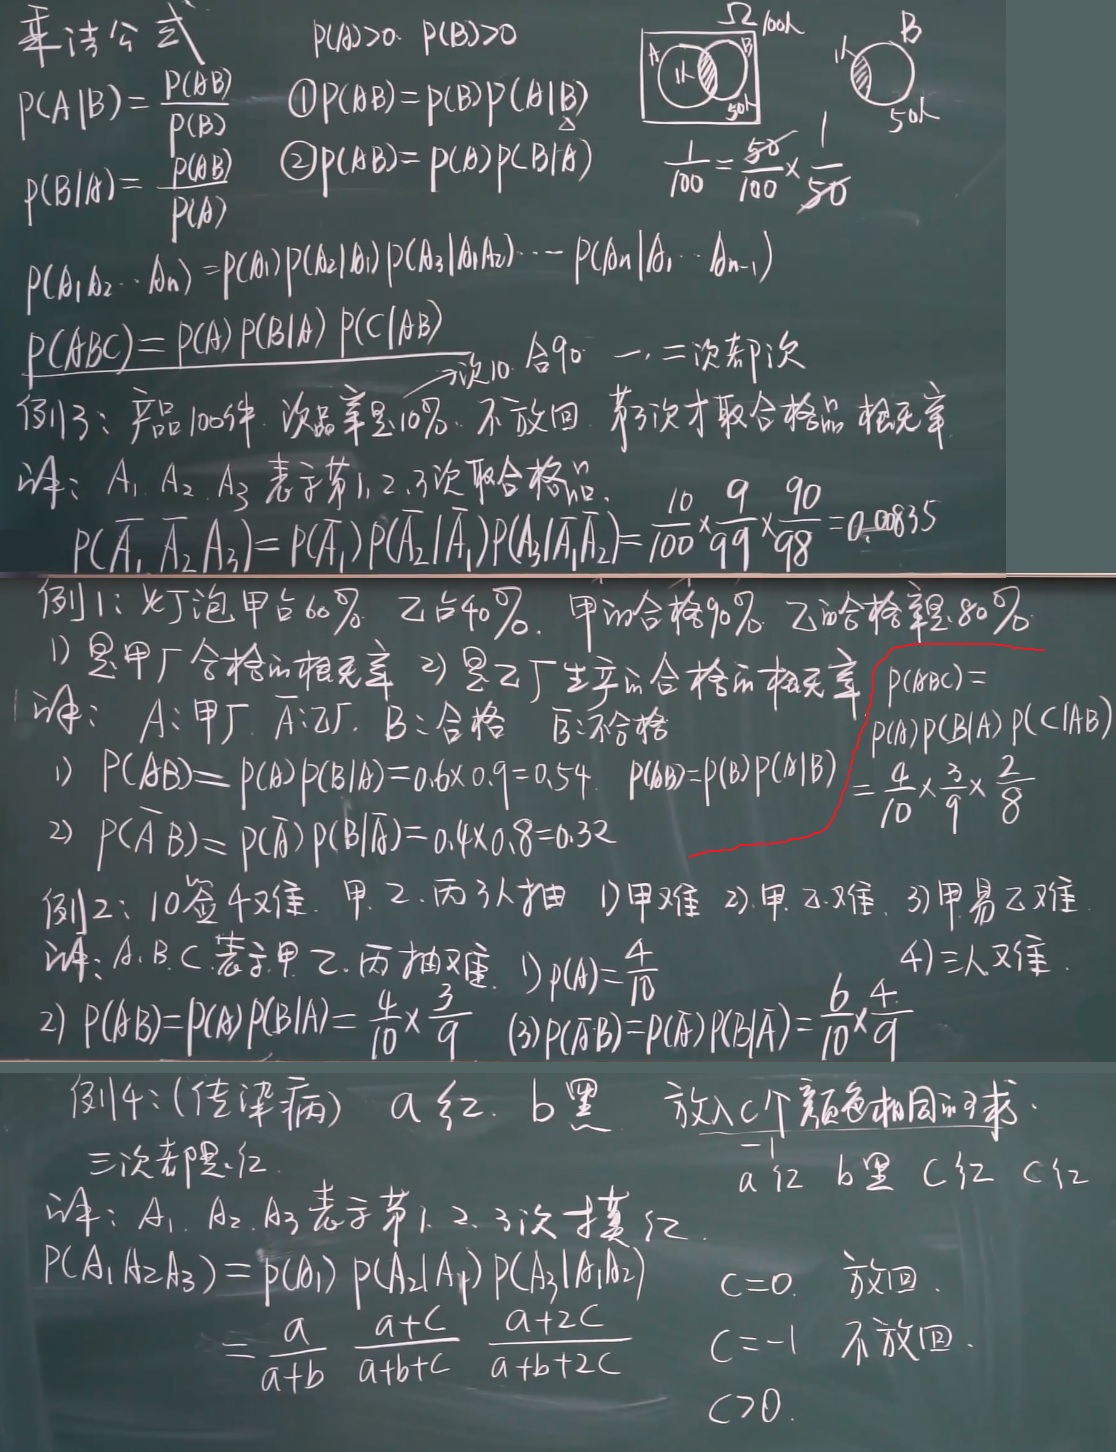 乘法公式 P(A)>0 P(B)>0 Ω 100个
P(A|B)=P(AB)/P(B) ①P(AB)=P(B)P(A|B) A 1个 B 50个 1个 B 50个
P(B|A)=P(AB)/P(A) ②P(AB)=P(A)P(B|A) 1/100=50/100×1/50
P(A₁A₂…An)=P(A₁)P(A₂|A₁)P(A₃|A₁A₂)…P(An|A₁…An-1)
P(ABC)=P(A)P(B|A)P(C|AB)
→次10 合90 一、二次都次
例3:产品100件 次品率是10% 不放回 第3次才取合格品 概率
解:A₁ A₂ A₃ 表示第1,2,3次取合格品.
P(A̅₁A̅₂A₃)=P(A̅₁)P(A̅₂|A̅₁)P(A₃|A̅₁A̅₂)=10/100×9/99×90/98=0.00835
例1:灯泡甲占60% 乙占40%. 甲的合格90% 乙的合格率是80%
1)是甲厂合格的概率 2)是乙厂生产的合格的概率
解: A:甲厂 A̅:乙厂 B:合格 B̅:不合格
1) P(AB)=P(A)P(B|A)=0.6×0.9=0.54 P(AB)=P(B)P(A|B)
2) P(A̅B)=P(A̅)P(B|A̅)=0.4×0.8=0.32
P(ABC)=
P(A)P(B|A)P(C|AB)
=4/10×3/9×2/8
例2:10签4难 甲.乙.丙3人抽 1)甲难 2)甲.乙难 3)甲易乙难
4)三人难.
解:A.B.C.表示甲乙.丙抽难. 1)P(A)=4/10
2)P(AB)=P(A)P(B|A)=4/10×3/9 (3)P(A̅B)=P(A̅)P(B|A̅)=6/10×4/9
例4:(传染病) a红. b黑 放入c个颜色相同的球.
三次都是红. -1
a红 b黑 c红 c红
解:A₁ A₂ A₃表示第1.2.3次摸红.
P(A₁A₂A₃)=P(A₁)P(A₂|A₁)P(A₃|A₁A₂) c=0. 放回.
=a/(a+b) (a+c)/(a+b+c) (a+2c)/(a+b+2c) c=-1 不放回.
c>0.